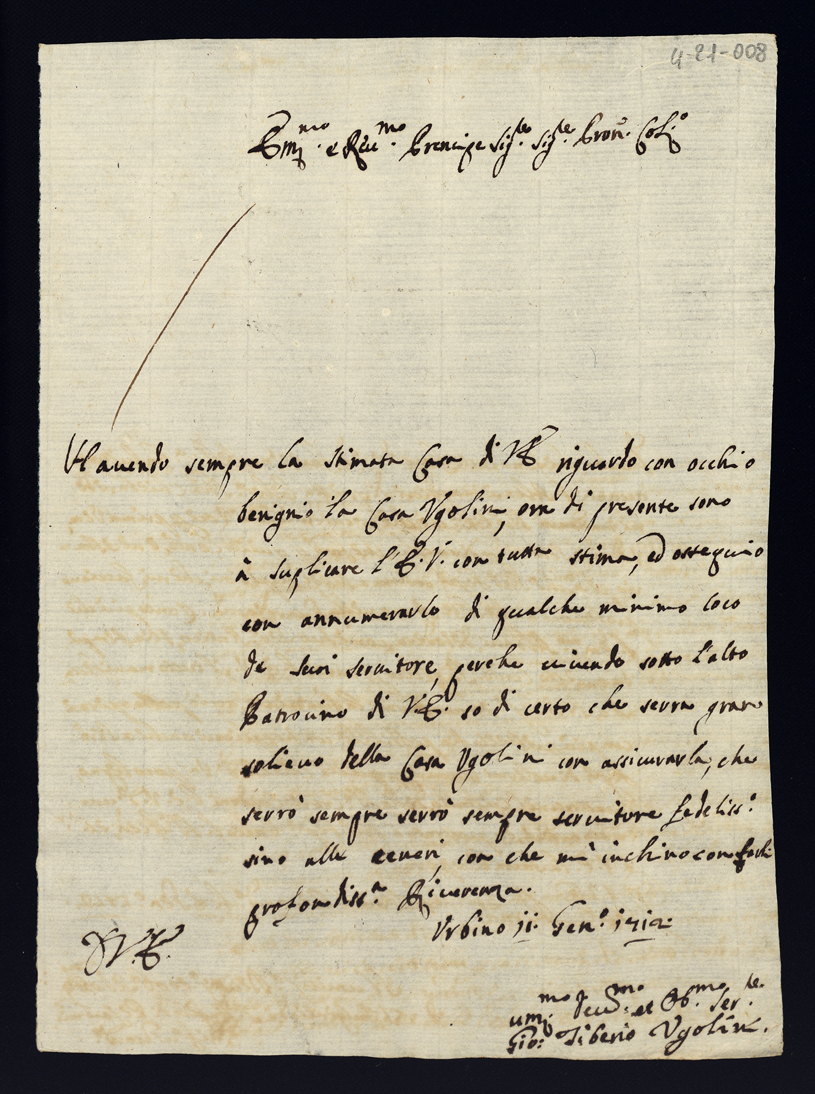 4-21-008
Em.mo e Reu.mo Prencipe Sig.re Sig.re Pron. Col.o
Hauendo sempre la stimata Casa di VE riguordo con occhio
benignio la Casa Vgolini, ora di presente sono
à suplicare l'E.V. con tutta stima, ed ossequio
con annumerarlo di qualche minimo loco
de suoi seruitore, perche uiuendo sotto l'alto
Patrocino di VE. so di certo che serra gran
solieuo della Casa Vgolini con assicurarla, che
serrò sempre serrò sempre seruitore fedeliss.o
sino alle ceneri, con che mi inchino con
profondiss.a Riuerenza.
Vrbino ii. Gen.o
D V.E.
um.mo Deu.mo et Ob.mo Ser.re
Gio: Tiberio Vgolini.